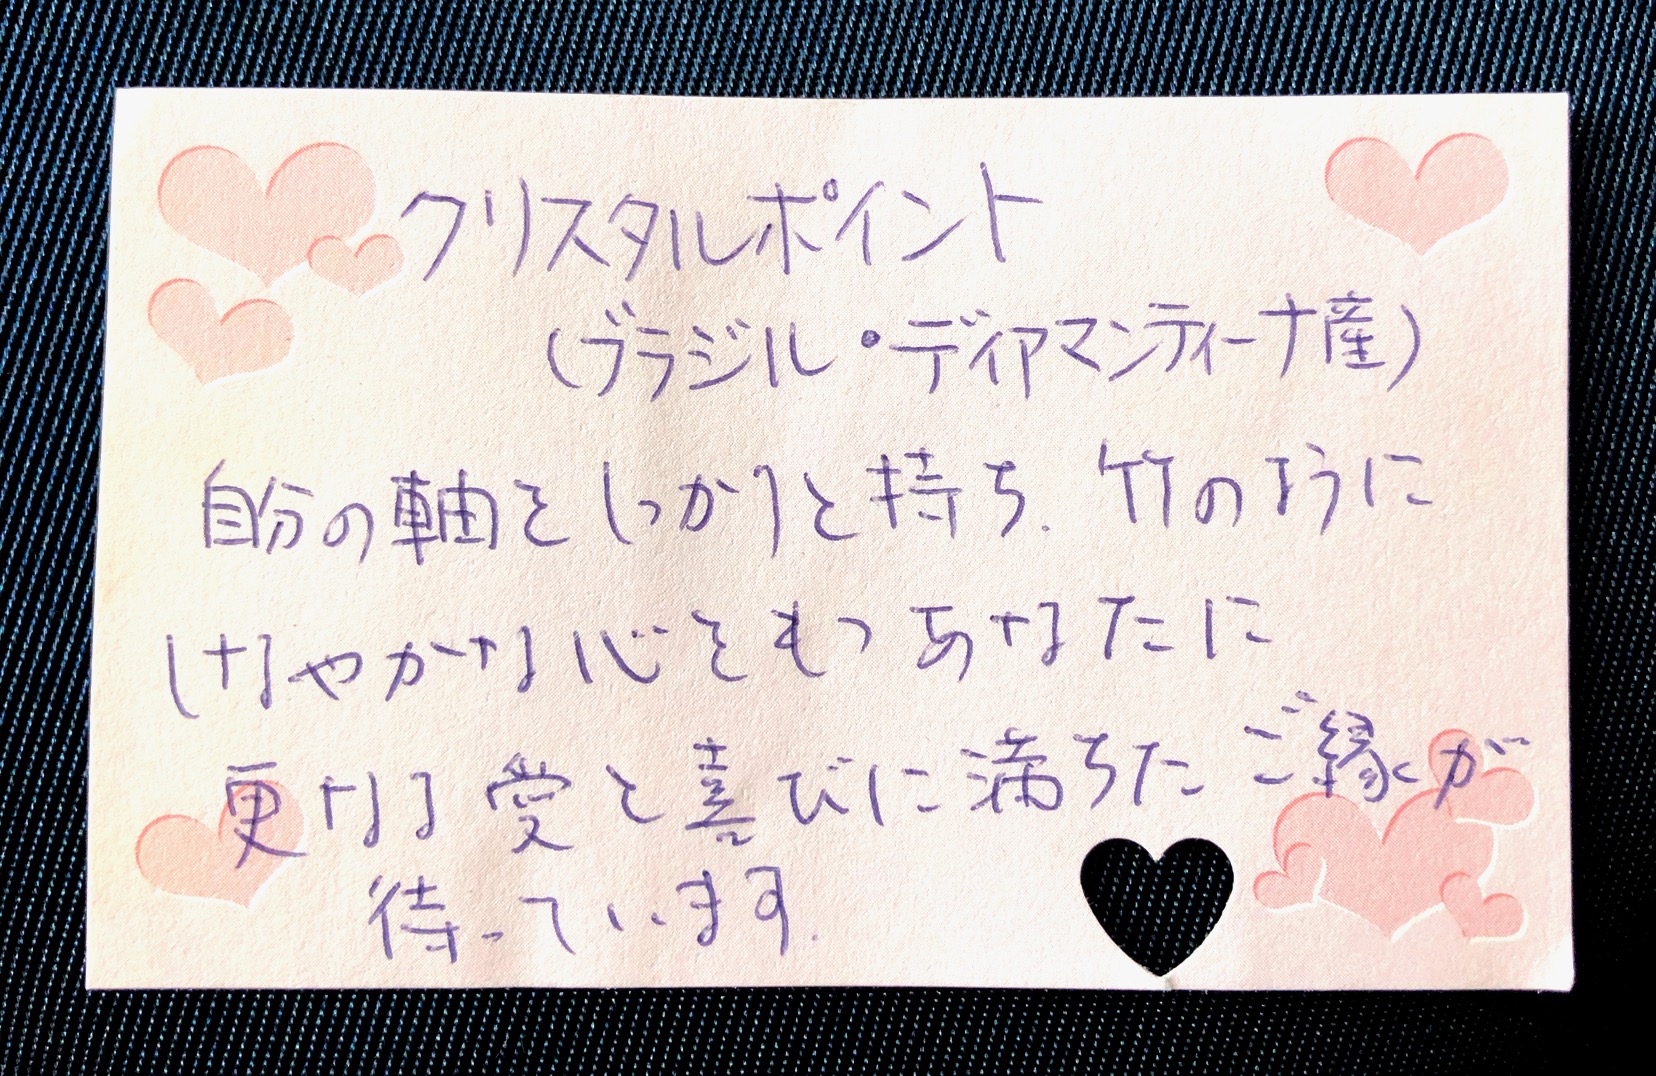 クリスタルポイント
(ブラジル・ディアマンティーナ産)
自分の軸をしっかりと持ち、竹のように
しなやかな心をもつあなたに
更なる愛と喜びに満ちたご縁が
待っています.